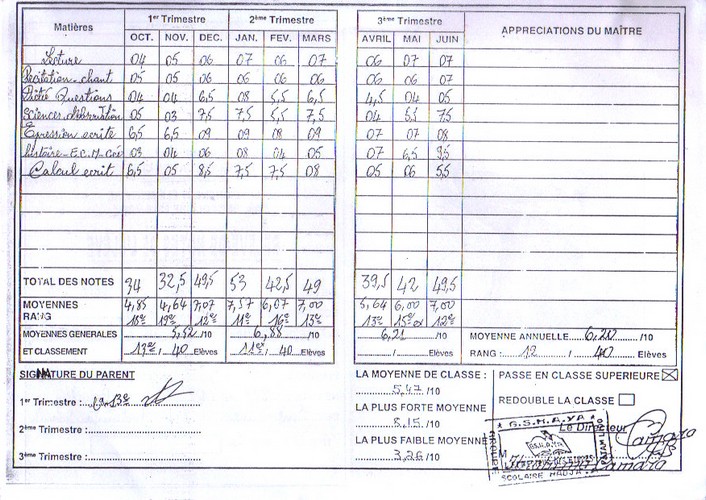 Matières 1er Trimestre 2ème Trimestre 3ème Trimestre APPRECIATIONS DU MAÎTRE
OCT. NOV. DEC. JAN. FEV. MARS AVRIL MAI JUIN
Lecture 04 05 06 07 06 07 06 07 07
Récitation-chant 05 05 06 06 06 06 06 06 07
Dictée Questions 04 04 6,5 08 5,5 6,5 4,5 04 05
Sciences d'observation 05 03 7,5 7,5 5,5 7,5 04 5,5 7,5
Expression ecrite 6,5 6,5 09 09 08 09 07 07 08
histoire-E.C.M-Géo 03 04 06 08 04 05 07 6,5 9,5
Calcul ecrit 6,5 05 8,5 7,5 7,5 08 05 06 5,5
TOTAL DES NOTES 34 32,5 49,5 53 42,5 49 39,5 42 49,5
MOYENNES 4,85 4,64 7,07 7,57 6,07 7,00 5,64 6,00 7,00
RANG 18e 19e 12e 11e 16e 13e 13e 15e ex 12e
MOYENNES GENERALES 5,52 /10 6,88 /10 6,21 /10 MOYENNE ANNUELLE 6,20 /10
ET CLASSEMENT 17e / 40 Elèves 12e / 40 Elèves / Elèves RANG : 12 / 40 Elèves
SIGNATURE DU PARENT
1er Trimestre :
2ème Trimestre :
3ème Trimestre :
LA MOYENNE DE CLASSE :
5,47 /10
LA PLUS FORTE MOYENNE
8,15 /10
LA PLUS FAIBLE MOYENNE
3,26 /10
PASSE EN CLASSE SUPERIEURE
REDOUBLE LA CLASSE
G.S.H.A.YA
Le Directeur
Camara
SCOLAIRE HADJA